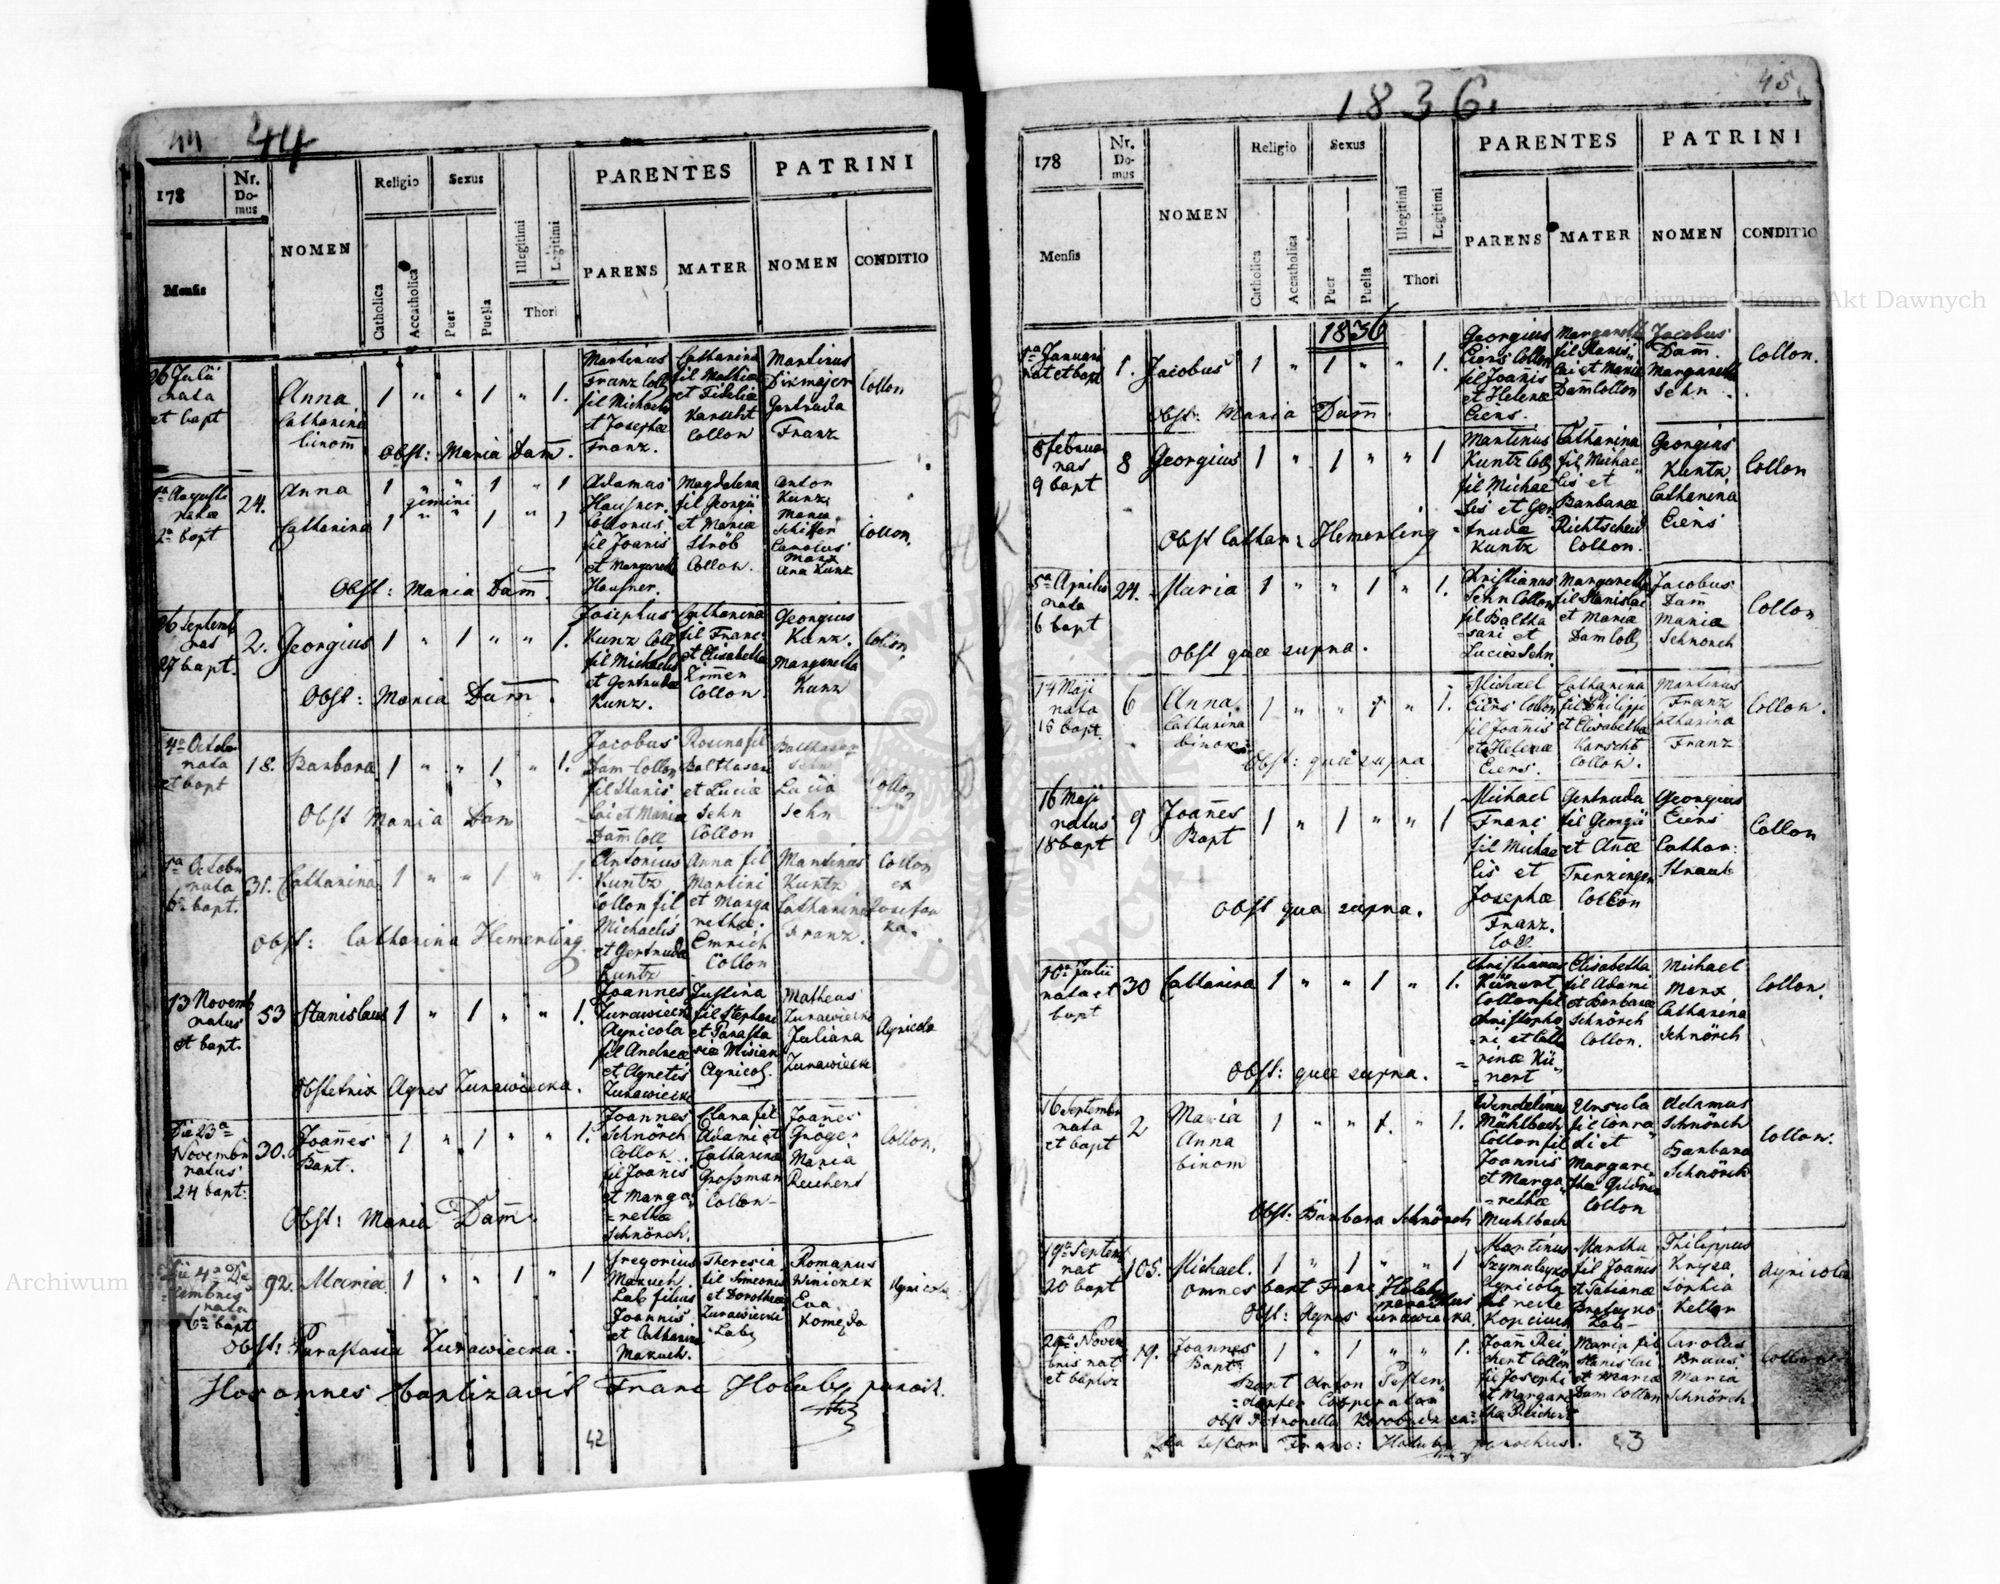 44 44
178 Nr. Domus NOMEN Religio Sexus Illegitimi Legitimi PARENTES PATRINI
Mensis Catholica Accatholica Puer Puella Thori PARENS MATER NOMEN CONDITIO
26 Julii nata et bapt
Anna Catharina binom̄
1 " " 1 " 1.
Martinus Franz Coll. fil Michaelis et Josephæ Franz.
Catharina fil Mathiæ et Fideliæ Karscht Collon
Martinus Dikmajer Gertruda Franz
Collon
Obst: Maria Dam̄.
1ª Augusti natæ 2ª bapt
24.
Anna 1 " " 1 " 1
gemini
Catharina 1 " " 1 " 1
Adamus Hausner. Collonus fil Joanis et Margareth Hausner.
Magdalena fil Georgii et Mariæ Ströb Collon.
Anton Kunz Maria Schiffer Carolus Marx Ana Kunz
Collon.
Obst: Maria Dam̄.
26 Septemb nas 27 bapt.
2. Georgius 1 " 1 " " 1.
Josephus Kunz Coll fil Michaelis et Gertrudæ Kunz.
Catharina fil Franc: et Elisabetha Zim̄er Collon
Georgius Kunz. Margaretha Kunz
Collon.
Obst: Maria Dam̄.
4ª Octobr nata et bapt
18. Barbara 1 " " 1 " 1.
Jacobus Dam Collon fil Stanislai et Mariæ Dam̄ Coll
Rosina fil Balthasari et Luciæ Sehn Collon
Balthasar Sehn Lucia Sehn
Collon
Obst Maria Dam
5ª Octobr nata 6ª bapt.
31. Catharina 1 " " 1 " 1.
Antonius Kuntz Collon fil Michaelis et Gertrudæ Kuntz
Anna fil Martini et Margarethæ Emrich Collon
Martinus Kuntz Catharina Franz.
Collon ex
Obst: Catharina Hemerling.
13 Novemb natus et bapt.
53 Stanislaus 1 " 1 " " 1.
Joannes Zurawiecki Agricola fil Andreæ et Agnetis Zurawiecki
Justina fil Stephani et Parastasiæ Misian Agricol.
Matheus Zurawiecki Juliana Zurawiecki
Agricola
Obstetrix Agnes Zurawiecka.
Die 23ª Novembr natus 24 bapt.
30. Joan̄es Bapt. 1 " 1 " " 1.
Joannes Schnörch Collon fil Joan̄is et Margarethæ Schnörch.
Clara fil Adami et Catharinæ Grosman Collon
Joan̄es Gröger Maria Reichert
Collon.
Obst: Maria Dam̄.
Die 4ª Decembris nata 6ª bapt
92. Maria 1 " " 1 " 1
Gregorius Makuch. Lab filius Joannis et Catharina Makuch.
Theresia fil Simeonis et Dorotheæ Zurawiecki Lab
Romanus Winiczek Eva Komeda
Agricola
Obst: Parastasia Zurawiecka.
Hos omnes baptizavit Franc Holuby paroch.
42
1836. 45
178 Nr. Domus NOMEN Religio Sexus Illegitimi Legitimi PARENTES PATRINI
Mensis Catholica Accatholica Puer Puella Thori PARENS MATER NOMEN CONDITIO
1836
1ª Januari nat et bapt
1. Jacobus 1 " 1 " " 1.
Georgius Eiers Collon fil Joan̄is et Helenæ Eiers.
Margaretha fil Stanislai et Mariæ Dam̄ Collon
Jacobus Dam̄. Margaretha Sehn
Collon.
Obst: Maria Dam̄.
8 februar nas 9 bapt
8 Georgius 1 " 1 " " 1
Martinus Kuntz Coll fil Michaelis et Gertrudæ Kuntz
Catharina fil Michaelis et Barbaræ Richtscheid Collon.
Georgius Kuntz Catharina Eiers
Collon
Obst Cathar: Hemerling
5ª Aprilis nata 6 bapt
24. Maria 1 " " 1 " 1.
Christianus Sehn Collon fil Balthasari et Luciæ Sehn
Margaretha fil Stanislai et Mariæ Dam Coll
Jacobus Dam̄ Maria Schnörch
Collon
Obst quæ supra.
14 Maji nata 15 bapt
6 Anna Catharina binom 1 " " 1 " 1.
Michael Eiers Collon fil Joan̄is et Helenæ Eiers.
Catharina fil Philippi et Elisabethæ Karscht Collon.
Martinus Franz Catharina Franz
Collon.
Obst: quæ supra
16 Maji natus 18 bapt
9 Joan̄es Bapt 1 " 1 " " 1
Michael Franc fil Michaelis et Josephæ Franz. Coll.
Gertruda fil Georgii et Anæ Trenzinger Collon
Georgius Eiers Cathar: Straub
Collon
Obst quæ supra.
10ª Julii nata et bapt
30 Catharina 1 " " 1 " 1.
Christianus Künert Collon fil Christophori, et Catharinæ Künert
Elisabetha fil Adami et Barbaræ Schnörch Collon.
Michael Marx Catharina Schnörch
Collon.
Obst: quæ supra.
16 Septembr nata et bapt
2 Maria Anna binom 1 " " 1. " 1.
Wendelinus Mühlbach Collon fil Joannis et Margarethæ Muhlbach
Ursula fil Conradi et Margarethæ Collon
Adamus Schnörch Barbara Schnörch
Collon.
Obst: Barbara Schnörch
19ª Septem nat 20 bapt
105. Michael. 1 " 1 " " 1
Martinus Agricola
Martha fil Joan̄is et Tatianæ
Philippus Knysz Sophia
Agricola
omnes bapt Franc Holuby parochus
Obst: Agnes Zurawiecka.
Novembris nat et baptiz
19. Joannes Bapt: 1 " 1 " " 1.
Joan̄ Reichert Collon fil Josephi et Margarethæ Reichert
Maria fil Stanislai et Mariæ Dam Collon
Carolus Braus Maria Schnörch
Collon
Bapt Anton Cooperator
Obst Petronella
Franc: Holuby parochus.
43
Archiwum Główne Akt Dawnych